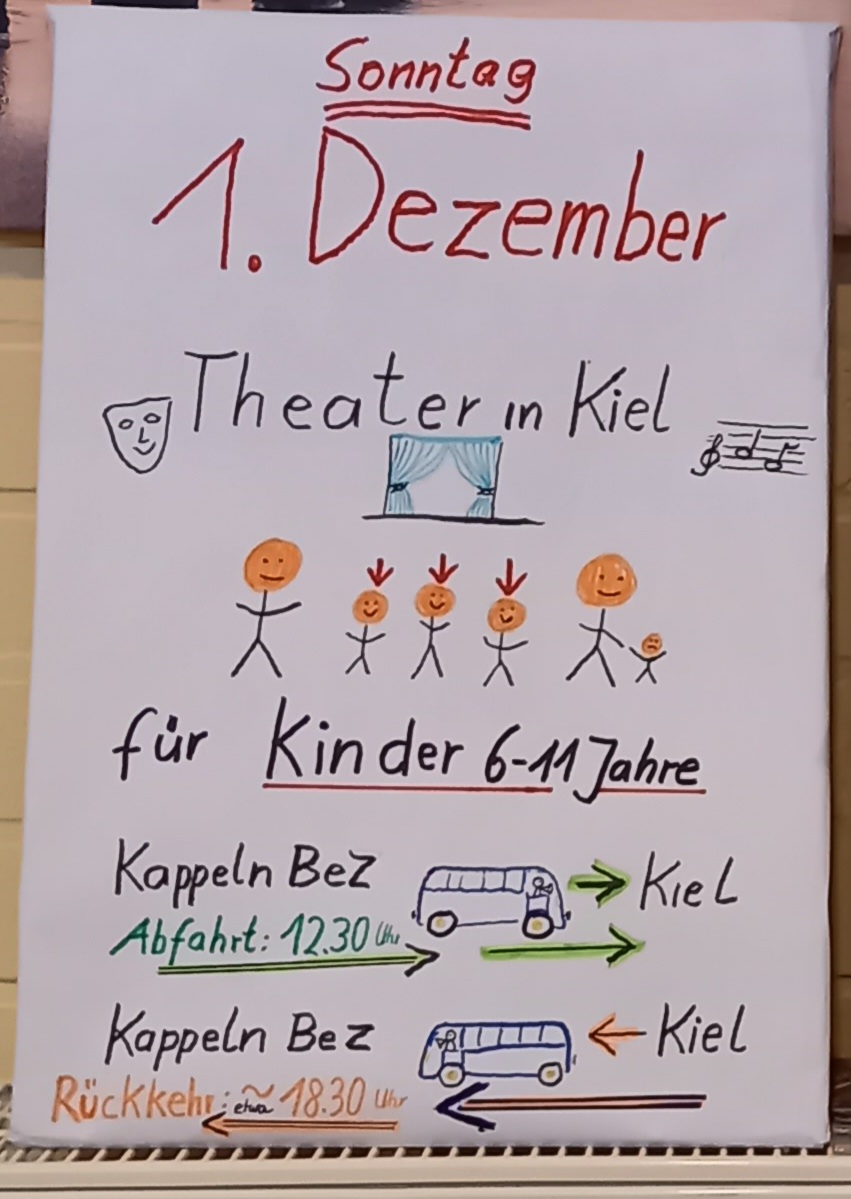 Sonntag
1. Dezember
Theater in Kiel
für Kinder 6-11 Jahre
Kappeln Bez Kiel
Abfahrt: 12.30 Uhr
Kappeln Bez Kiel
Rückkehr: etwa ~ 18.30 Uhr